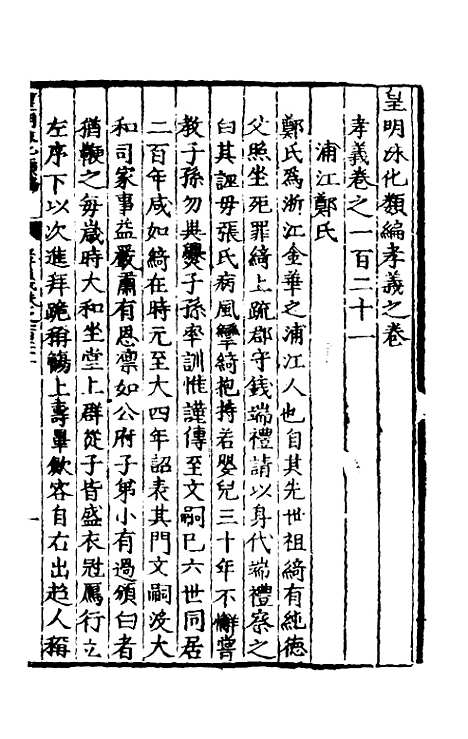 皇明泳化類編孝義之卷
孝義卷之一百二十一
浦江鄭氏
鄭氏爲浙江金華之浦江人也自其先世祖綺有純德
父照坐死罪綺上疏郡守錢端禮請以身代端禮察之
白其誣母張氏病風攣綺抱持若嬰兒三十年不懈嘗
教子孫勿異爨子孫率訓惟謹傳至文嗣巳六世同居
二百年咸如綺在時元至大四年詔表其門文嗣沒大
和司家事益嚴肅有恩凛如公府子弟小有過頒白者
猶鞭之每歲時大和坐堂上群從子皆盛衣冠鴈行立
左序下以次進拜跪稱觴上壽畢歛容自右出趋人稱